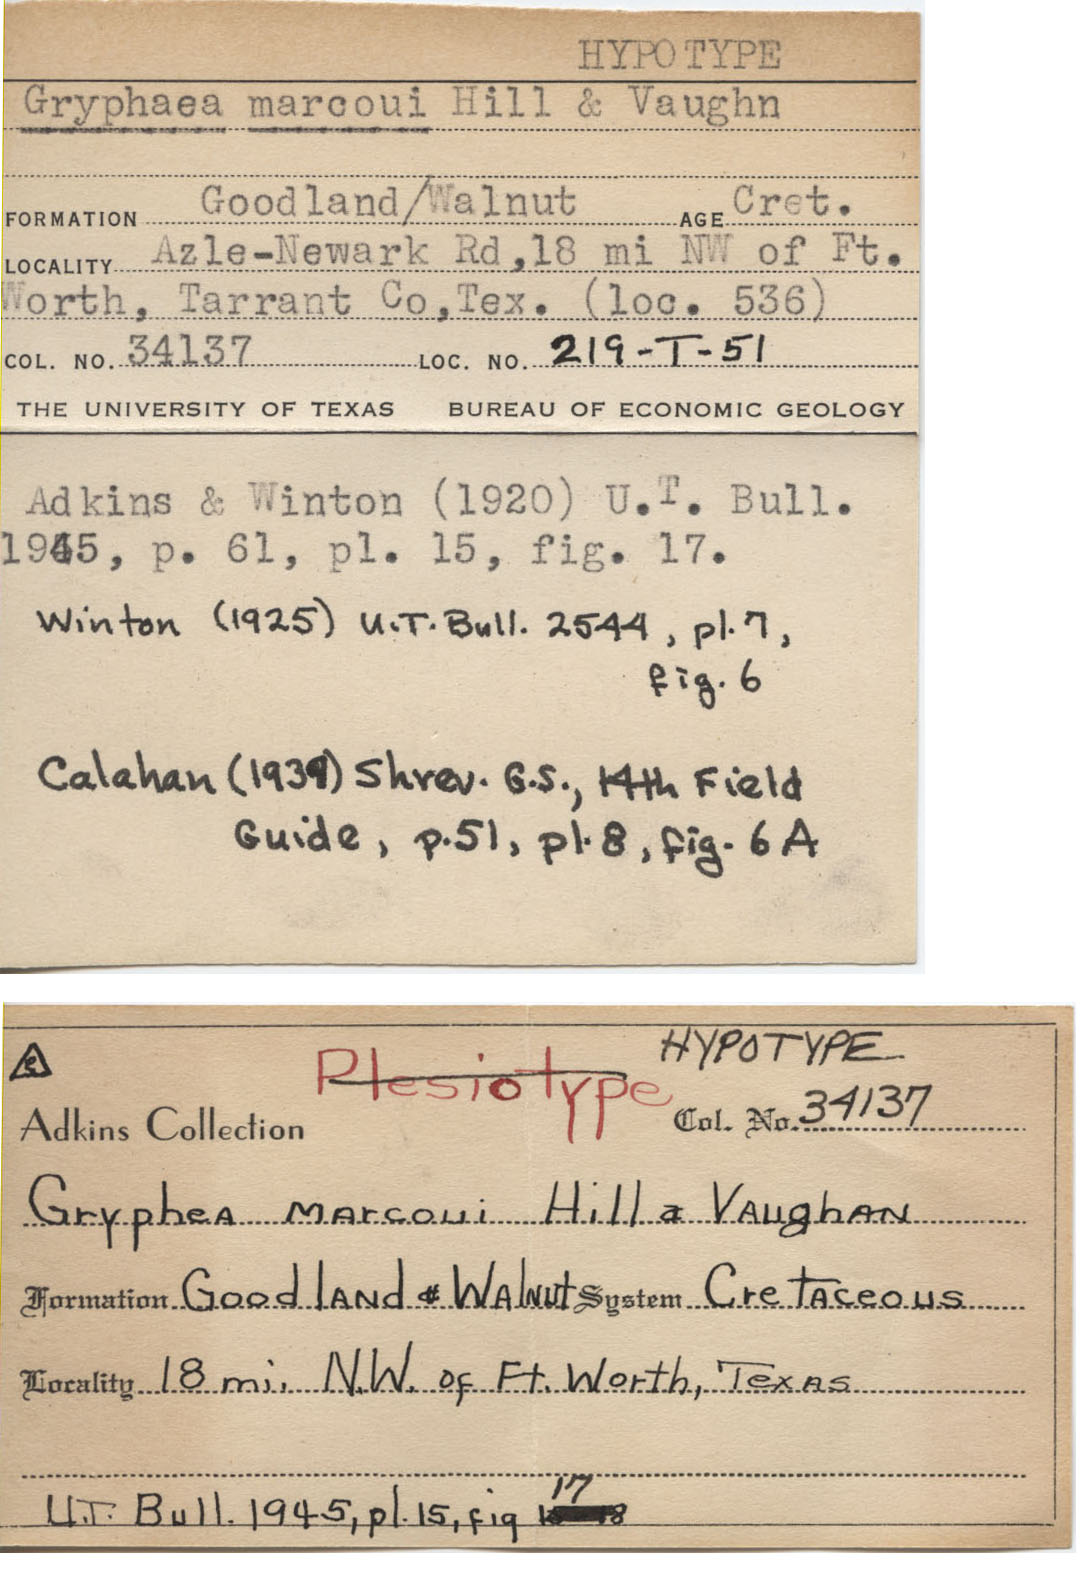 HYPOTYPE
Gryphaea marcoui Hill & Vaughn
FORMATION Goodland/Walnut AGE Cret.
LOCALITY Azle-Newark Rd,18 mi NW of Ft.
Worth, Tarrant Co,Tex. (loc. 536)
COL. NO. 34137 LOC. NO. 219-T-51
THE UNIVERSITY OF TEXAS BUREAU OF ECONOMIC GEOLOGY
Adkins & Winton (1920) U.T. Bull.
1945, p. 61, pl. 15, fig. 17.
Winton (1925) U.T. Bull. 2544, pl. 7,
fig. 6
Calahan (1939) Shrev. G.S., 14th Field
Guide, p.51, pl. 8, fig. 6A
e
Plesiotype HYPOTYPE
Adkins Collection Col. No. 34137
Gryphea marcoui Hill & Vaughan
Formation Goodland & Walnut System Cretaceous
Locality 18 mi. N.W. of Ft. Worth, Texas
17
U.T. Bull. 1945, pl. 15, fig